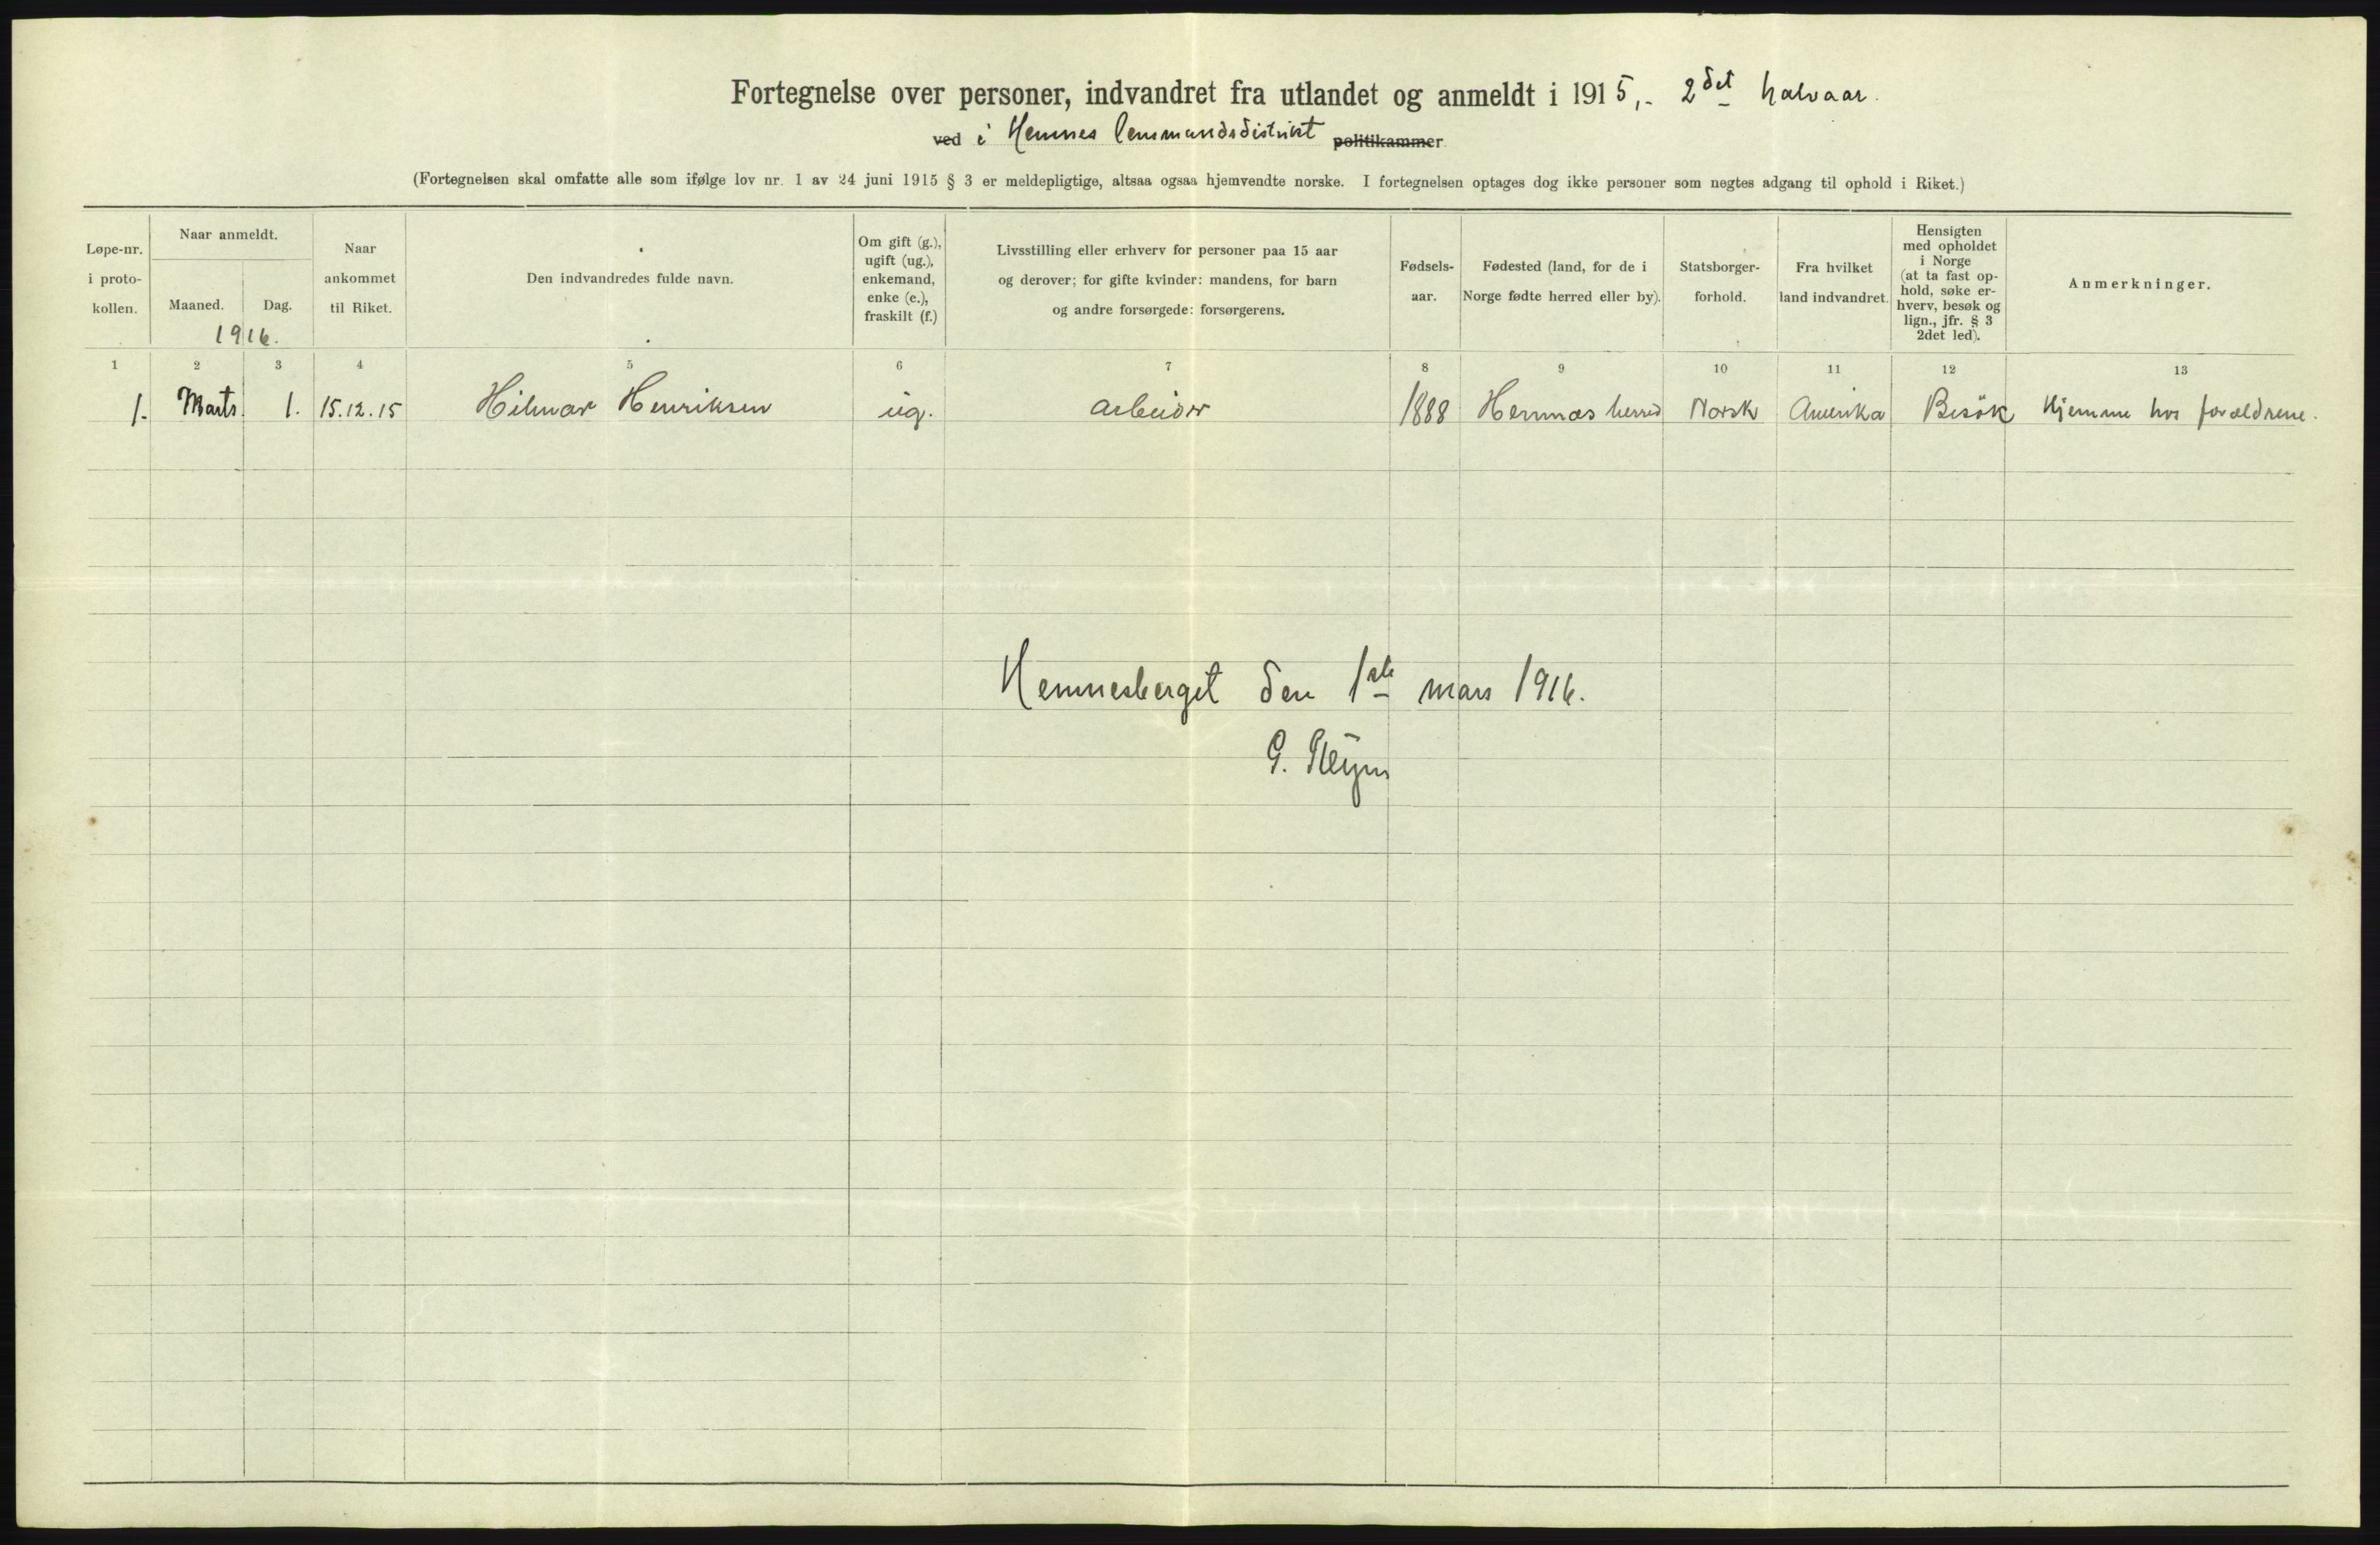 Fortegnelse over personer, indvandret fra utlandet og anmeldt i 1915,- 2det halvaar.
ved i Hemnes lensmandsdistrikt politikammer
(Fortegnelsen skal omfatte alle som ifølge lov nr. 1 av 24 juni 1915 § 3 er meldepligtige, altsaa ogsaa hjemvendte norske. I fortegnelsen optages dog ikke personer som negtes adgang til ophold i Riket.)
Løpe-nr.
i proto-
kollen.
Naar anmeldt.
Maaned.
Dag.
1916.
Naar
ankommet
til Riket.
Den indvandredes fulde navn.
Om gift (g.),
ugift (ug.),
enkemand,
enke (e.),
fraskilt (f.)
Livsstilling eller erhverv for personer paa 15 aar
og derover; for gifte kvinder: mandens, for barn
og andre forsørgede: forsørgerens.
Fødsels-
aar.
Fødested (land, for de i
Norge fødte herred eller by).
Statsborger-
forhold.
Fra hvilket
land indvandret.
Hensigten
med opholdet
i Norge
(at ta fast op-
hold, søke er-
hverv, besøk og
lign., jfr. § 3
2det led).
Anmerkninger.
1 2 3 4 5 6 7 8 9 10 11 12 13
1. Marts. 1. 15.12.15 Hilmar Henriksen ug. arbeider 1888 Hemnæs herred Norsk Amerika Besök Hjemme hos forældrene.
Hemnesberget den 1ste mars 1916.
G.